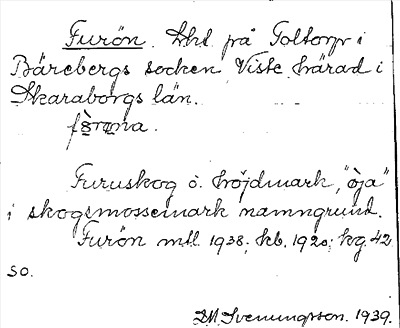 Furön. Lht på Foltorp i
Bärebergs socken Viste härad i
Skaraborgs län.
Furuskog o. höjdmark, "öja"
i skogsmossemark namngrund.
Furön mtl. 1938; kb. 1920; kg. 42
SO.
D. M. Svenungsson. 1939.